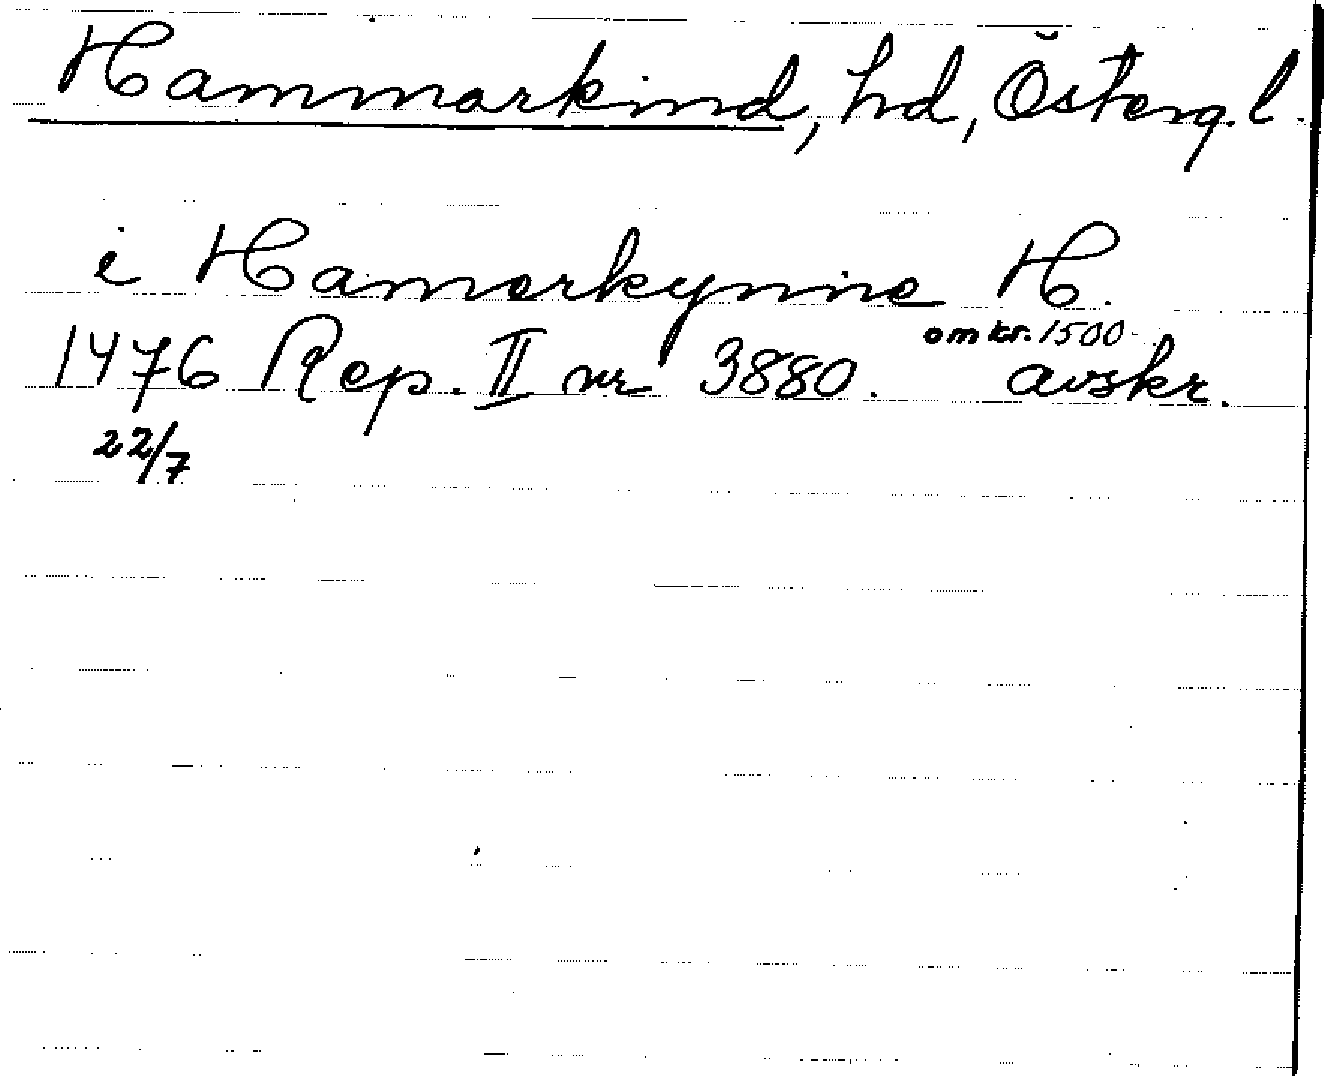 Hammarkind, hd, Österg. l.
i Hamerkynne H.
1476 Rep. II nr 3880. omkr. 1500 avskr.
22/7